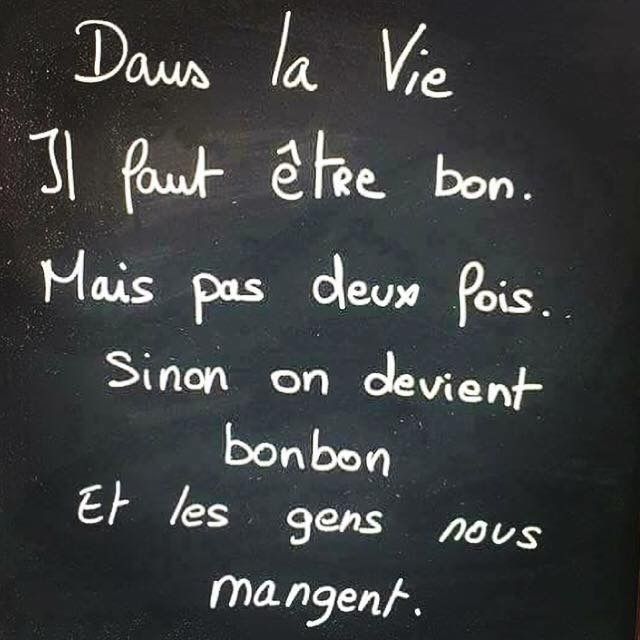 Dans la Vie
Il faut être bon.
Mais pas deux fois..
Sinon on devient
bonbon
Et les gens nous
mangent.